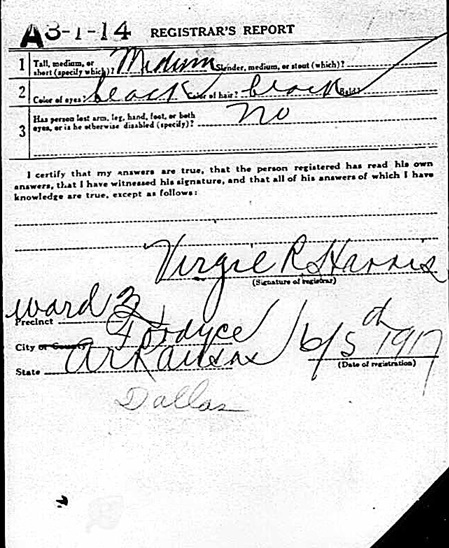 A 3-1-14 REGISTRAR'S REPORT
1 Tall, medium, or short (specify which)? Medium Slender, medium, or stout (which)?
2 Color of eyes? black Color of hair? black Bald?
3 Has person lost arm, leg, hand, foot, or both eyes, or is he otherwise disabled (specify)? No
I certify that my answers are true, that the person registered has read his own
answers, that I have witnessed his signature, and that all of his answers of which I have
knowledge are true, except as follows:
Virgie R Harris
(Signature of registrar)
Precinct Ward 3
City or County Fordyce
State Arkansas 6/5th 1917
(Date of registration)
Dallas